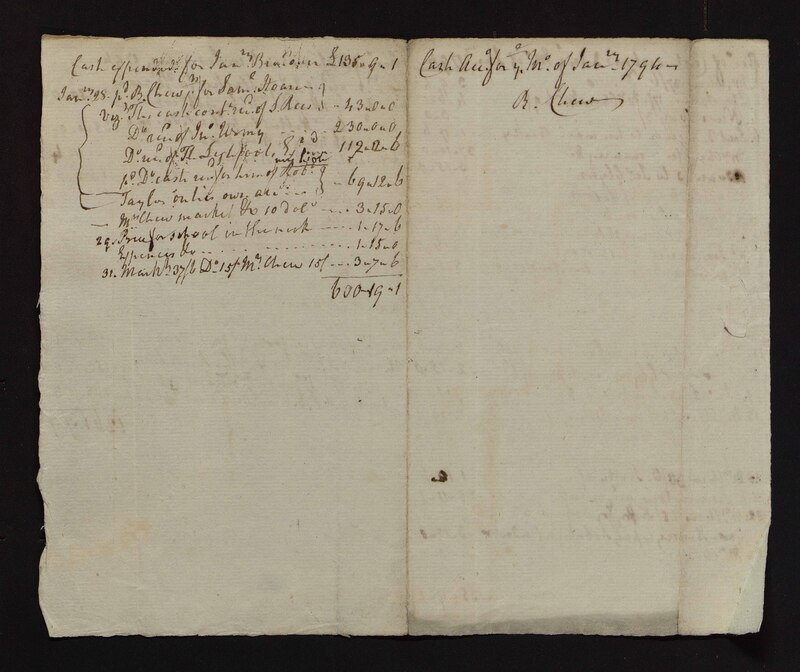 Cash expended for Jany Bro't over £ 136 " 9 " 1
Jany 28. pd B. Chew pr for Saml Hoare
Viz This cash cont recd of S. Rees 43 " 0 " 0
Do recd of Jno 230 " 0 " 0
Do recd of Th. 112 " 12 " 6
pd Do cash recd for him of Robt
Taylor on his own acct 69 " 12 " 6
Mrs Chew market &c 10 dolrs 3 " 15 " 0
29. for school in the neck 1 " 17 " 6
Expences &c 1 " 15 " 0
31. Markt 37/6 Do 15/ Mrs Chew 15/ 3 " 7 " 6
600 " 19 " 1
Cash Acct for ye Mo. of Jany 1794
B. Chew